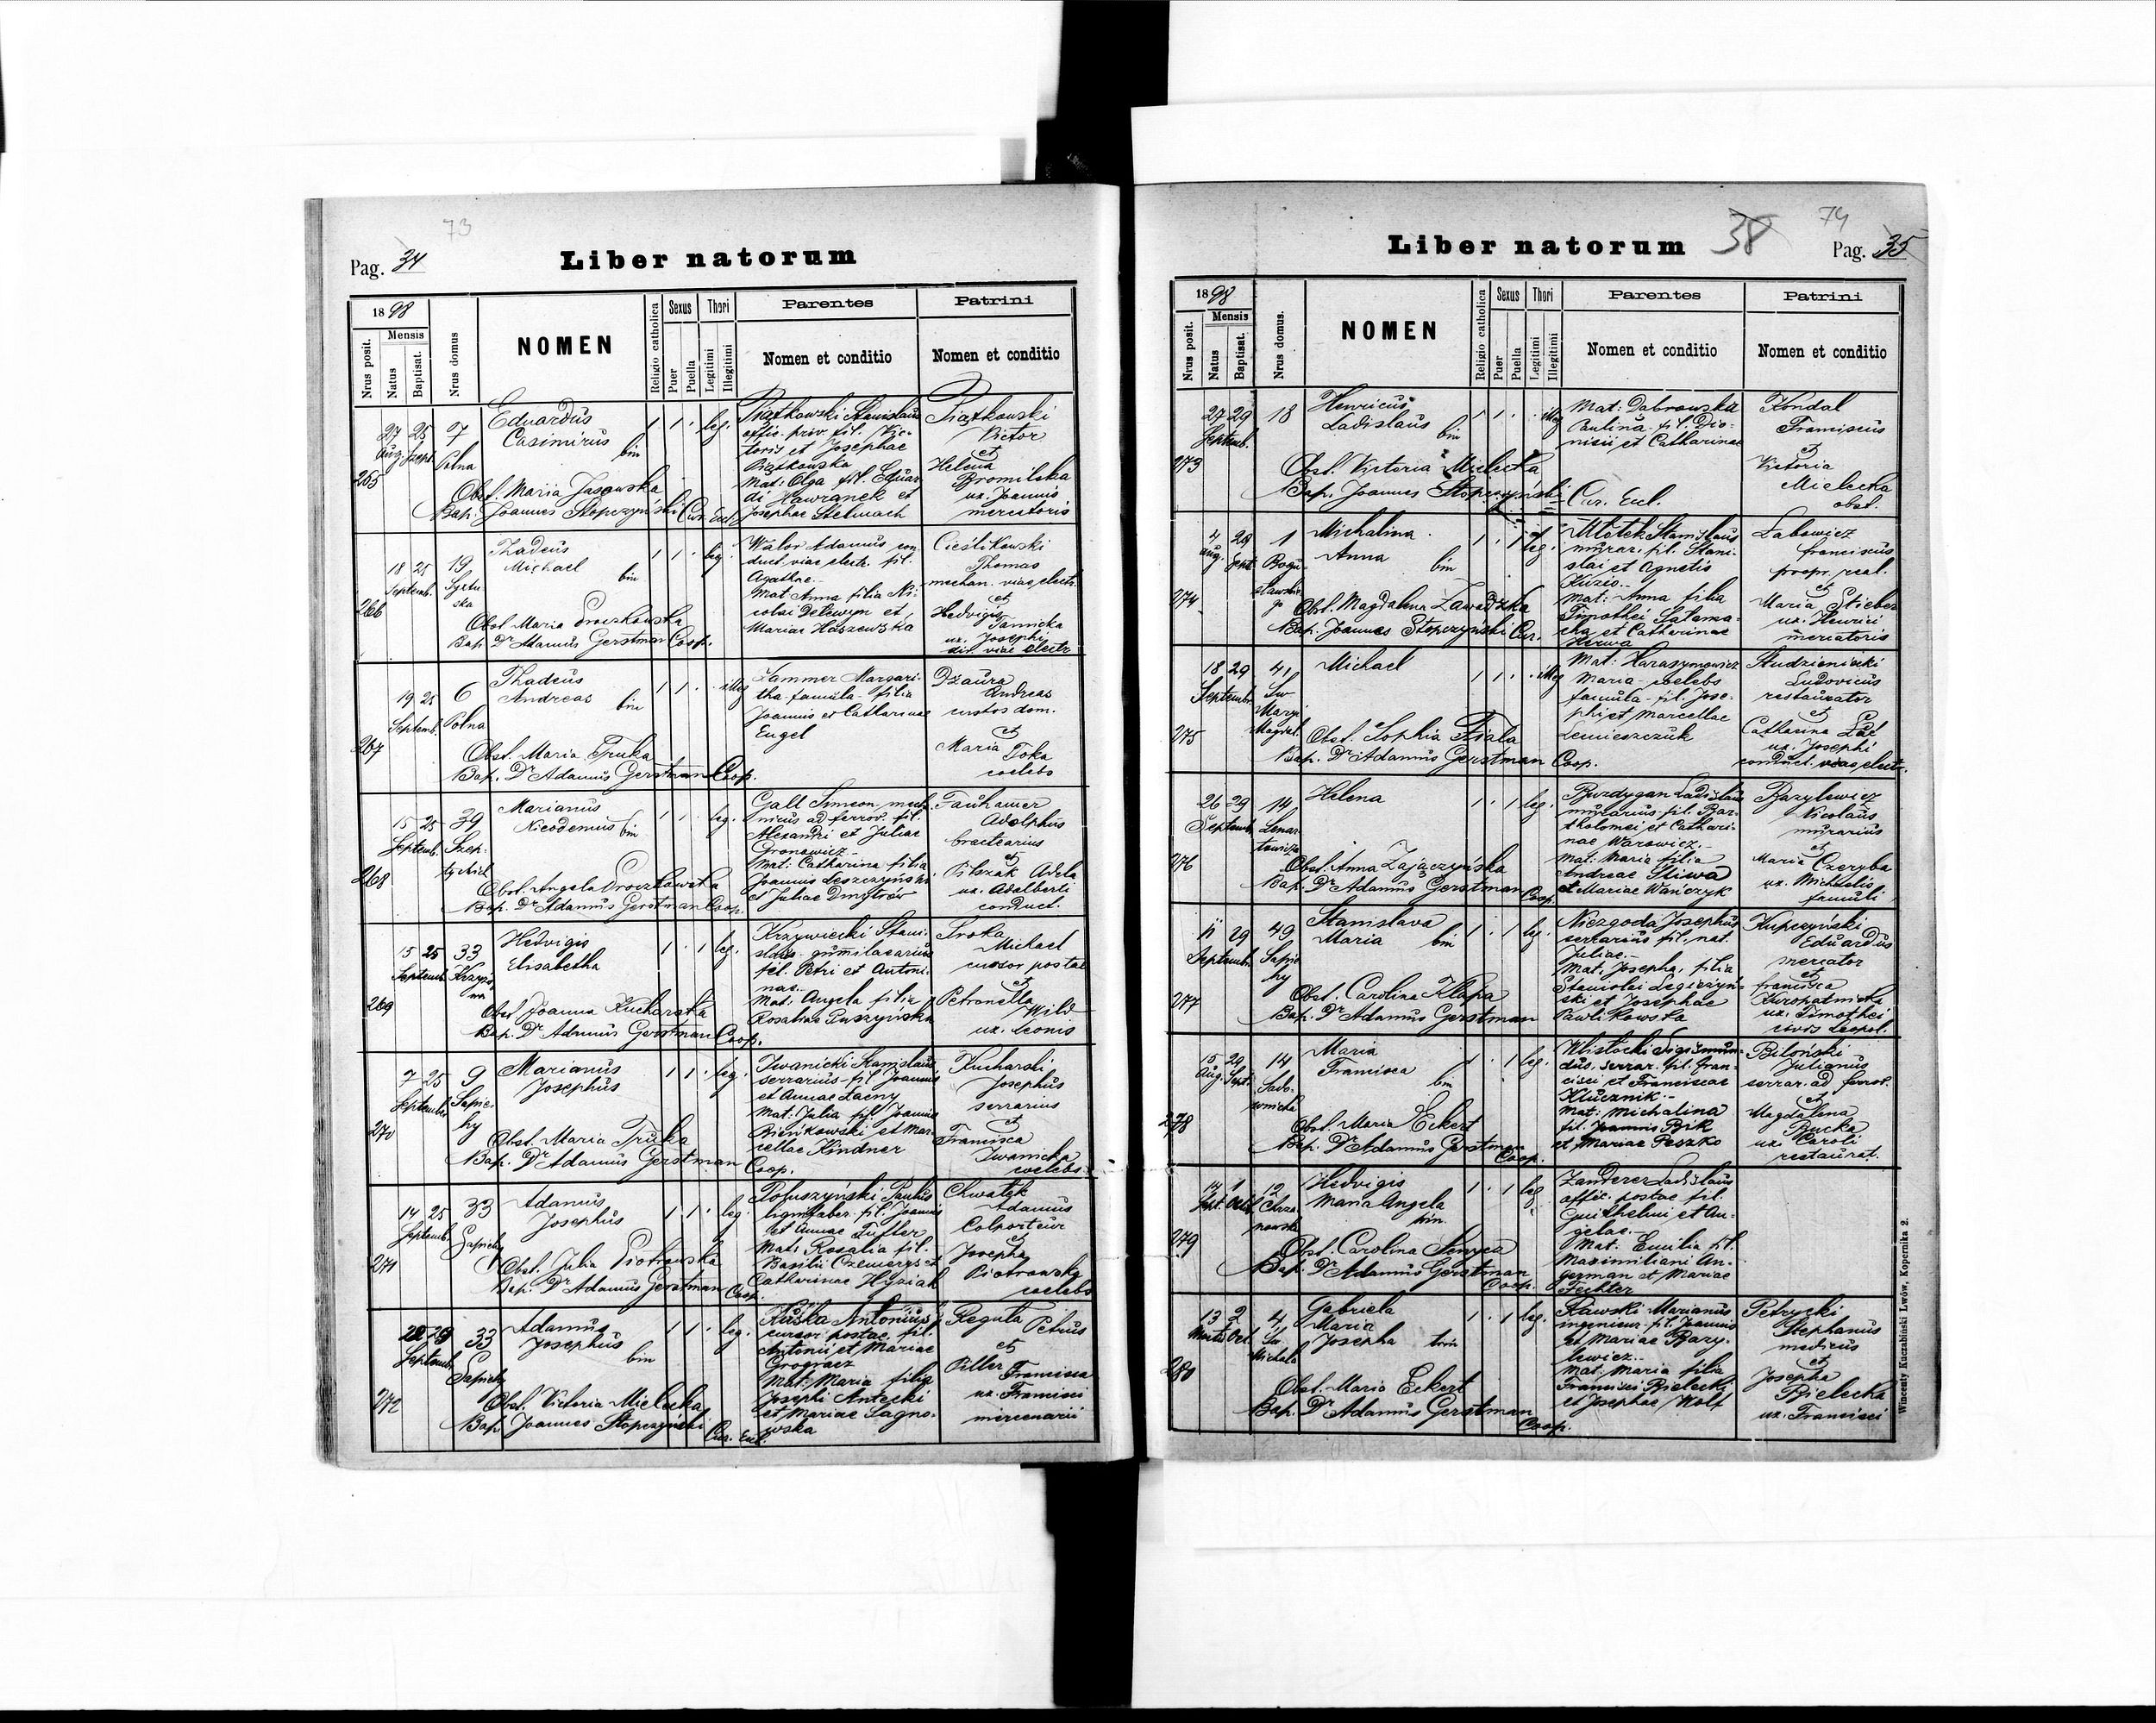 73
Pag. 34
Liber natorum
1898
Nrus posit.
Mensis
Natus
Baptisat.
Nrus domus
NOMEN
Religio catholica
Sexus
Puer
Puella
Thori
Legitimi
Illegitimi
Parentes
Nomen et conditio
Patrini
Nomen et conditio
265
27 25
Aug. Sept.
7
Polna
Eduardus
Casimirus
bin
1 1 · leg.
Obst. Maria Jasowska
Bap. Joannes Stopczyński Cur. Eccl.
Piątkowski Stanislaus
offic. priv. fil. Vic-
toris et Josephae
Piątkowska
Mat: Olga fil. Eduar-
di Hawranek et
Josephae Stelmach
Piątkowski
Victor
et
Helena
Bromilska
ux. Joannis
mercatoris
266
18 25
Septemb.
19
Syxtu-
ska
Thadeus
Michael
bin
1 1 · leg.
Obst Maria Droszkowska
Bap. Dr Adamus Gerstman Coop.
Walor Adamus con-
duct. viae electr. fil.
Agathae.-
Mat Anna filia Ni-
colai Delewyn et
Mariae Haszewska
Cieślikowski
Thomas
mechan. viae electr.
et
Hedvigis
Jannicka
ux. Josephi
dir. viae electr.
267
19 25
Septemb.
6
Polna
Thadeus
Andreas
bin
1 1 · illeg
Obst. Maria Truka
Bap. Dr Adamus Gerstman Coop.
Lammer Margari-
tha famula - filia
Joannis et Catharinae
Engel
Dżaura
Andreas
custos dom.
et
Maria Toka
coelebs
268
15 25
Septemb.
39
Szep-
tyckich
Marianus
Nicodemus bin
1 1 · leg.
Obst. Angela Droszkowska
Bap. Dr Adamus Gerstman Coop.
Gall Simeon mecha-
nicus ad ferrov. fil.
Alexandri et Juliae
Gronowicz.-
Mat: Catharina filia
Joannis Leszczyński
et Juliae Dmytrów
Fauhamer
Adolphus
bractearius
et
Pilszak Adela
ux. Adalberti
conduct.
269
15 25
Septemb.
33
Hedvigis
Elisabetha
1 · 1 leg.
Obst Joanna Kucharska
Bap. Dr Adamus Gerstman Coop.
Krzywiecki Stani-
slaus
fil. Petri et Antoni-
nae.-
Mat: Angela filia
Rosaliae Puszyńska
Sroka
Michael
cursor postae
et
Petronella
Wild
ux. Leonis
270
7 25
Septemb.
9
Sapie-
hy
Marianus
Josephus
1 1 · leg.
Obst. Maria Truka
Bap. Dr Adamus Gerstman Coop.
Iwanicki Stanislaus
serrarius - fil. Joannis
et Annae Łacny
Mat: Julia fil. Joannis
Bieńkowski et Mar-
cellae Kindner
Kucharski
Josephus
serrarius
et
Francisca
Iwanicka
coelebs
271
14 25
Septemb.
33
Sapiehy
Adamus
Josephus
1 1 · leg.
Obst. Julia Piotrowska
Bap. Dr Adamus Gerstman Coop.
Poluszyński Paulus
lignifaber. fil. Joannis
et Annae Tufler
Mat: Rosalia fil.
Basilii Czemerys et
Catharinae Hyziak
Chwałyk
Adamus
Colporteur
et
Josepha
Piotrowska
coelebs
272
33
Septemb.
Sapiehy
Adamus
Josephus
bin
1 1 · leg.
Obst. Victoria Mielecka
Bap Joannes Stopczyński Cur. Eccl.
Kuśka Antonius
cursor postae. fil.
Antonii et Mariae
Mat: Maria filia
Josephi Antecki
et Mariae Lagno-
wska
Reguła
Petrus
et
Piller Francisca
ux. Francisci
mercenarii
74
38
Liber natorum
Pag. 35
1898
Nrus posit.
Mensis
Natus
Baptisat.
Nrus domus.
NOMEN
Religio catholica
Sexus
Puer
Puella
Thori
Legitimi
Illegitimi
Parentes
Nomen et conditio
Patrini
Nomen et conditio
273
27 29
Septemb.
18
Henricus
Ladislaus
bin
1 1 · illeg
Obst. Victoria Mielecka
Bap. Joannes Stopczyński Cur. Eccl.
Mat: Dabrowska
Paulina fil. Dio-
nisii et Catharinae
Kondal
Franciscus
et
Victoria
Mielecka
obst.
274
4 29
Aug. Sept.
1
Bogu-
sławskie-
go
Michalina
Anna
bin
1 · 1 leg.
Obst. Magdalena Zawadzka
Bap. Joannes Stopczyński Cur.
Młotek Stanislaus
murar. fil. Stani-
slai et Agnetis
Kuzio.-
Mat: Anna filia
Timothei Salama-
cha et Catharinae
Herwa
Labowicz
Franciscus
propr. real.
et
Maria Stieber
ux. Henrici
mercatoris
275
18 29
Septemb.
41
Św
Maryi
Magdal.
Michael
1 1 · illeg
Obst Sophia Fiala
Bap. Dr Adamus Gerstman Coop.
Mat: Harasymowicz
Maria coelebs
famula - fil. Jose-
phi et Marcellae
Lemieszczuk
Studzieniecki
Ludovicus
restaurator
et
Catharina Łoś
ux. Josephi
conduct. viae electr.
276
26 29
Septemb.
14
Lenar-
towicza
Helena
1 · 1 leg.
Obst. Anna Zajączyńska
Bap. Dr Adamus Gerstman Coop.
Buzdygan Ladislaus
murarius fil. Bar-
tholomei et Cathari-
nae Warowicz.-
Mat: Maria filia
Andreae Śliwa
et Mariae Wańczyk
Bazylewicz
Nicolaus
murarius
et
Maria Czeryba
ux. Michaelis
famuli
277
11 29
Septemb.
49
Sapie-
hy
Stanislava
Maria bin
1 · 1 leg.
Obst. Carolina Klapa
Bap. Dr Adamus Gerstman
Niezgoda Josephus
serrarius fil. nat.
Juliae.-
Mat: Josepha, filia
Stanislai Legieżyń-
ski et Josephae
Pawlikowska
Kupczyński
Eduardus
mercator
et
Francisca
Kuropatnicka
ux. Timothei
civis Leopol.
278
15 29
Aug. Sept.
14
Sado-
wnicka
Maria
Francisca
bin
1 · 1 leg.
Obst. Maria Eckert
Bap. Dr Adamus Gerstman Coop.
Wisłocki Sigismun-
dus. serrar. fil. Fran-
cisci et Franciscae
Klucznik.-
Mat: Michalina
fil. Joannis Bik
et Mariae Peszko
Biloński
Julianus
serrar. ad ferrov.
et
Magdalena
Bucka
ux. Karoli
restaurat.
279
14 1
Sept. Octob
12
Chrza-
nowska
Hedvigis
Maria Angela
trin.
1 · 1 leg
Obst. Carolina Senycz
Bap. Dr Adamus Gerstman Coop.
Zanderer Ladislaus
offic. postae fil.
Guilhelmi et An-
gelae.-
Mat: Emilia fil.
Maximiliani An-
german et Mariae
Fechter
280
13 2
Martii Oct.
4
Św
Michała
Gabriela
Maria
Josepha trin
1 · 1 leg.
Obst. Maria Eckert
Bap. Dr Adamus Gerstman Coop.
Rawski Marianus
ingenieur. fil. Joannis
et Mariae Bazy-
lewicz.-
Mat: Maria filia
Francisci Bielecki
et Josephae Wolf
Petrycki
Stephanus
medicus
et
Josepha
Bielecka
ux. Francisci
Wincenty Kuczabiński Lwów, Kopernika 2.